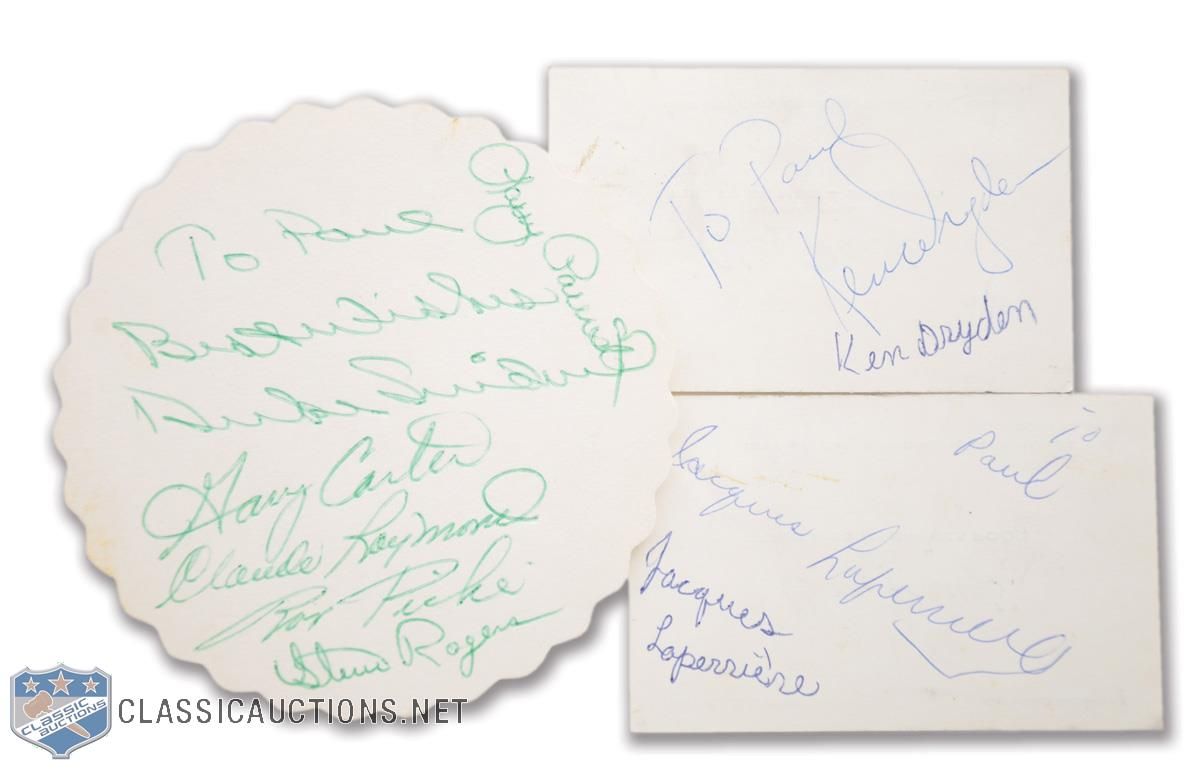 To Paul
Best Wishes
Duke Snider
Larry Parrish
Gary Carter
Claude Raymond
Ron Piché
Steve Rogers
To Paul
Ken Dryden
Ken Dryden
to
Paul
Jacques Laperrière
Jacques
Laperrière
CLASSIC
AUCTIONS
CLASSICAUCTIONS.NET